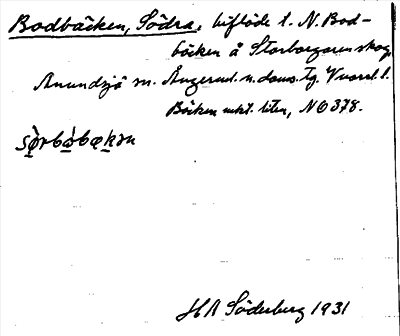 Bodbäcken, Södra, biflöde t. N. Bod-
bäcken å Storborgaren skog
Anundsjö sn. Ångerml. n. doms. tg. V-norrl. l.
Bäcken mkt. liten, NO 378.
HA Söderberg 1931